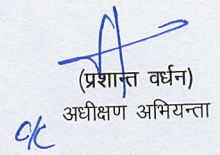 (प्रशान्त वर्धन)
अधीक्षण अभियन्ता
o/c